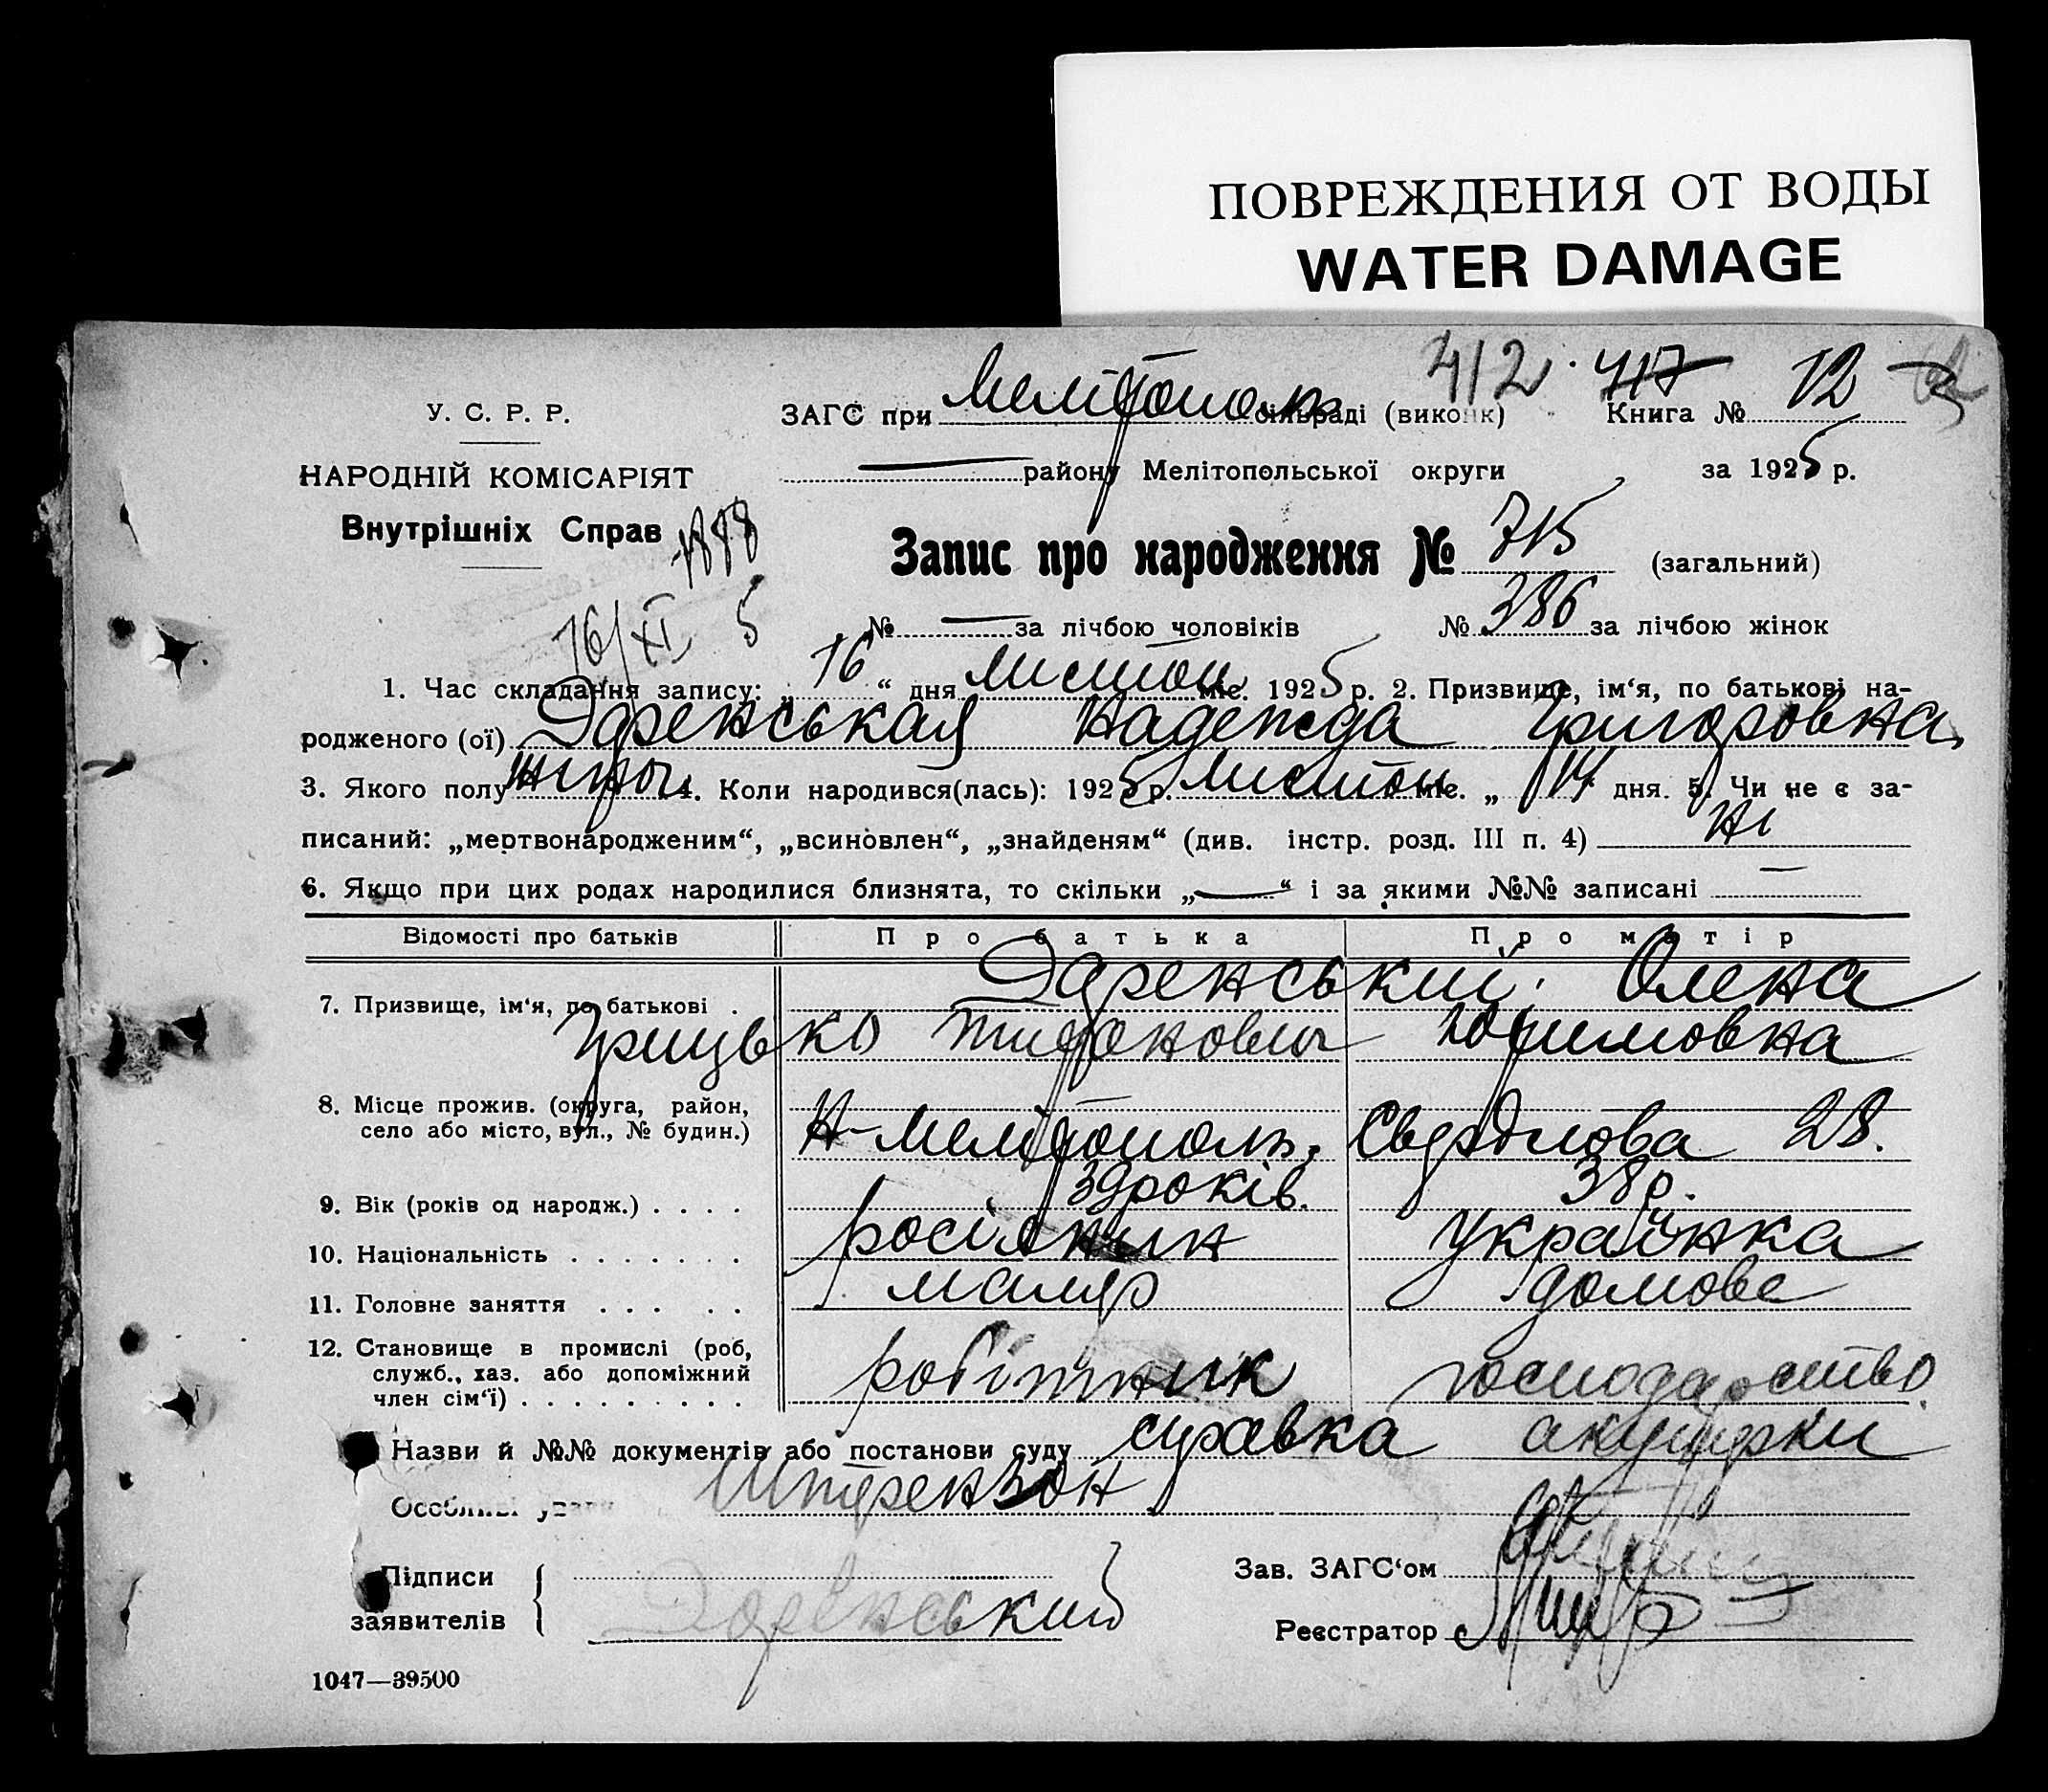 ПОВРЕЖДЕНИЯ ОТ ВОДЫ
WATER DAMAGE
412 417
У. С. Р. Р.
ЗАГС при Мелітополь сільраді (виконк) Книга № 12
НАРОДНІЙ КОМІСАРІЯТ
— району Мелітопольської округи за 1925 р.
Внутрішніх Справ
1888
Запис про народження № 715 (загальний)
16/XI 5
№ — за лічбою чоловіків № 386 за лічбою жінок
1. Час складання запису: „16“ дня листоп міс. 1925 р. 2. Призвище, ім‘я, по батькові на-
родженого (ої) Надежда Григоровна
3. Якого полу 4. Коли народився(лась): 1925 р. листоп міс. „14“ дня. 5. Чи не є за-
писаний: „мертвонародженим“, „всиновлен“, „знайденям“ (див. інстр. розд. III п. 4) Ні
6. Якщо при цих родах народилися близнята, то скільки „—“ і за якими №№ записані —
Відомості про батьків Про батька Про матір
7. Призвище, ім‘я, по батькові . Олена
Грицько
8. Місце прожив. (округа, район,
село або місто, вул., № будин.) Н-Мелітополь, Свердлова 28.
9. Вік (років од народж.) . . . . 39 років. 38 р.
10. Національність . . . . . . . росіянин Українка
11. Головне заняття . . . . . маляр домове
12. Становище в промислі (роб,
служб., хаз. або допоміжний
член сім‘ї) . . . . . . . . . робітник господарство
Назви й №№ документів або постанови суду справка акушерки
Особливі уваги
Підписи
заявителів
Зав. ЗАГС‘ом
Реєстратор
1047—39500